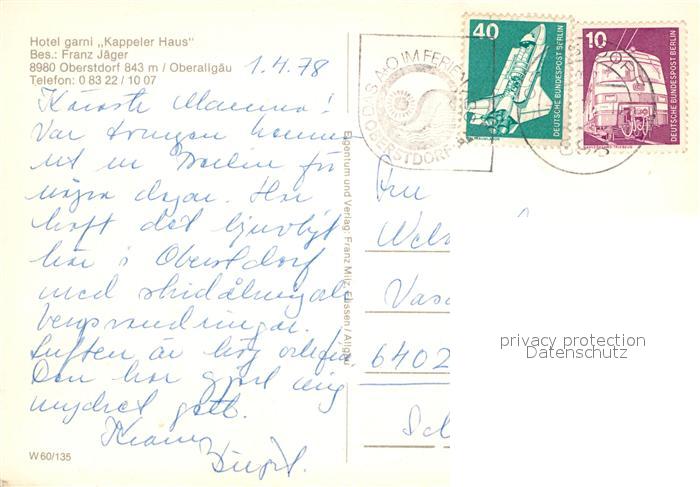 Hotel garni „Kappeler Haus"
Bes.: Franz Jäger
8980 Oberstdorf 843 m / Oberallgäu
Telefon: 0 83 22 / 10 07
1.4.78
Käraste Mamma!
Var tvungen komma
ut ur Berlin för
några dagar. Har
haft det ljuvligt
här i Oberstdorf
med skidåkning och
bergsvandringar.
Luften är hög
Den har gjort mig
mycket gott.
Kram
Birgit.
W 60/135
Eigentum und Verlag: Franz Milz, Füssen / Allgäu
IM FERIEN
OBERSTDORF
40
DEUTSCHE BUNDESPOST BERLIN
10
DEUTSCHE BUNDESPOST BERLIN
Fru
6402
privacy protection
Datenschutz